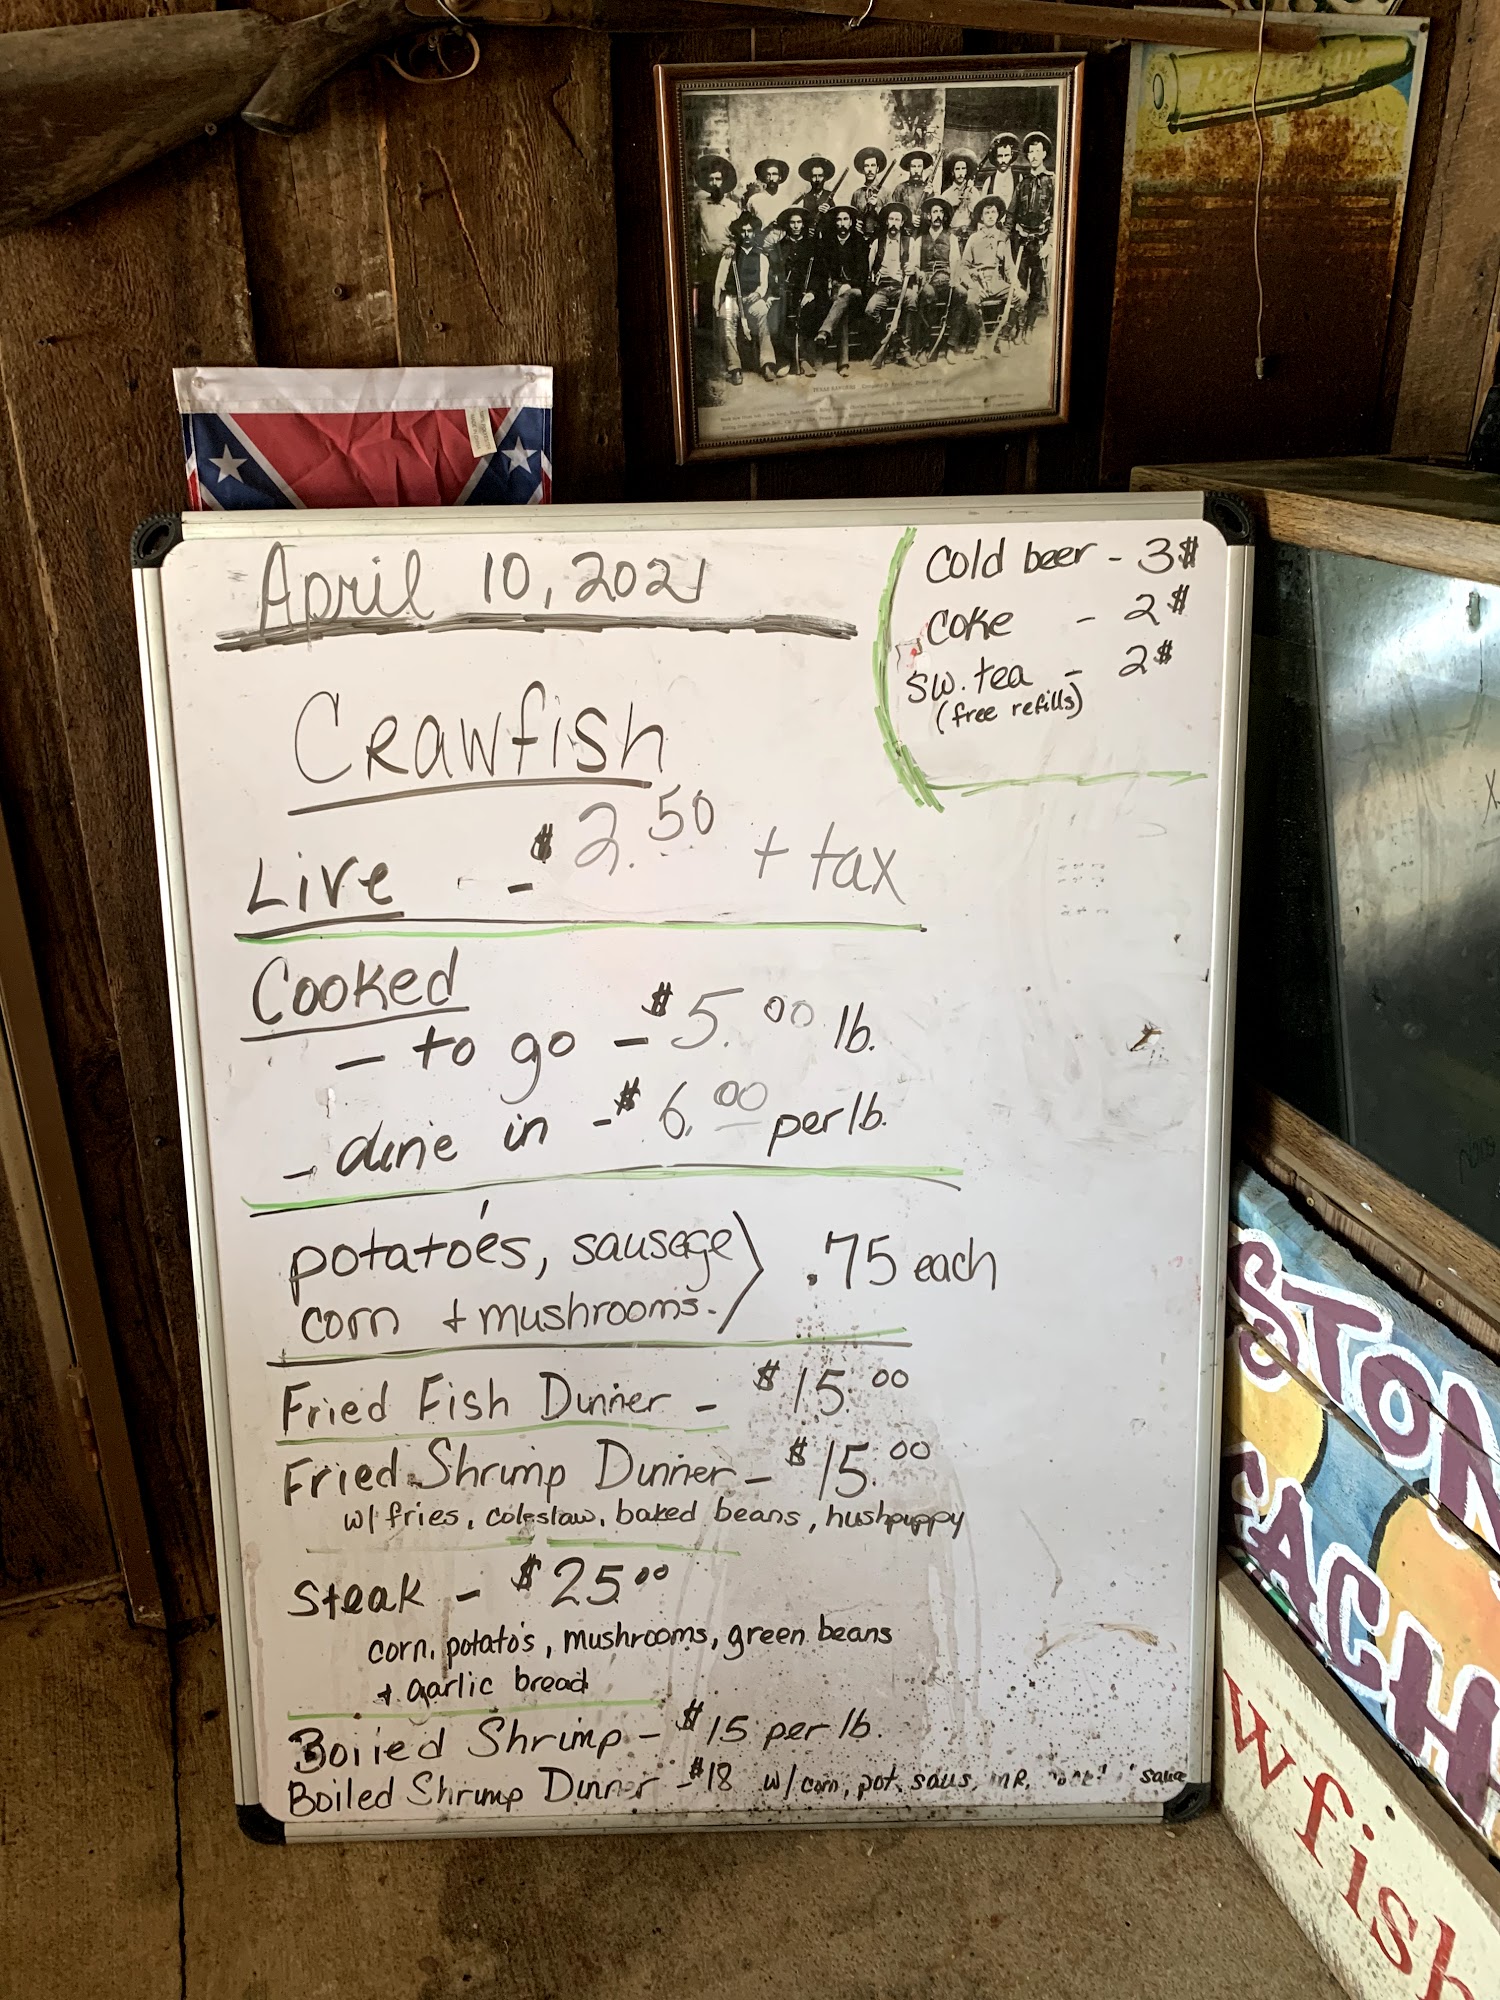 TEXAS RANGERS
April 10, 2021
Cold beer - 3$
Coke - 2$
Sw. tea - 2$
(free refills)
Crawfish
Live - $2.50 + tax
Cooked
- to go - $5.00 lb.
- dine in - $6.00 per lb.
potato'es, sausage
corn + mushrooms.
.75 each
Fried Fish Dinner - $15.00
Fried Shrimp Dinner - $15.00
w/ fries, coleslaw, baked beans, hushpuppy
Steak - $25.00
corn, potato's, mushrooms, green beans
+ garlic bread
Boiled Shrimp - $15 per lb.
Boiled Shrimp Dinner - $18 w/ corn, pot. saus, sauce
STON
EACH
wfish